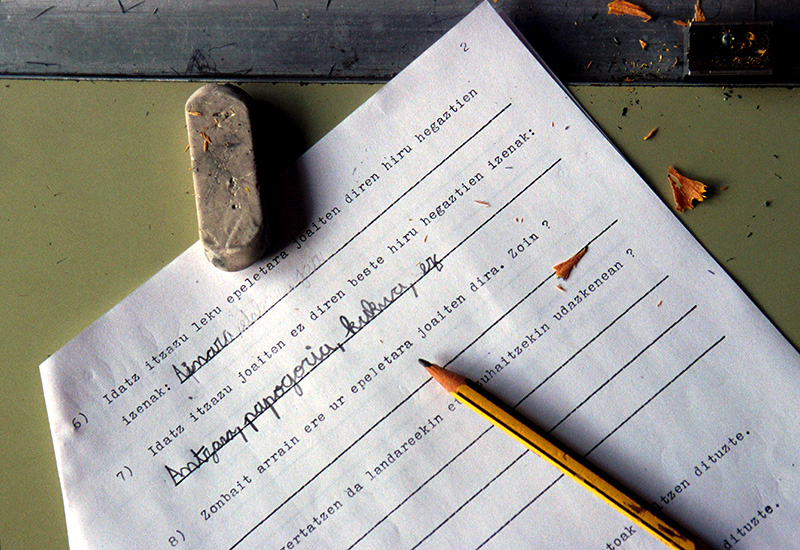 2
6) Idatz itzazu leku epeletara joaiten diren hiru hegaztien
izenak: Ainara,
7) Idatz itzazu joaiten ez diren beste hiru hegaztien izenak:
Antzara, papogorria, kukua, ez
8) Zonbait arrain ere ur epeletara joaiten dira. Zoin ?
gertatzen da landareekin eta zuhaitzekin udazkenean ?
dituzte.
dituzte.